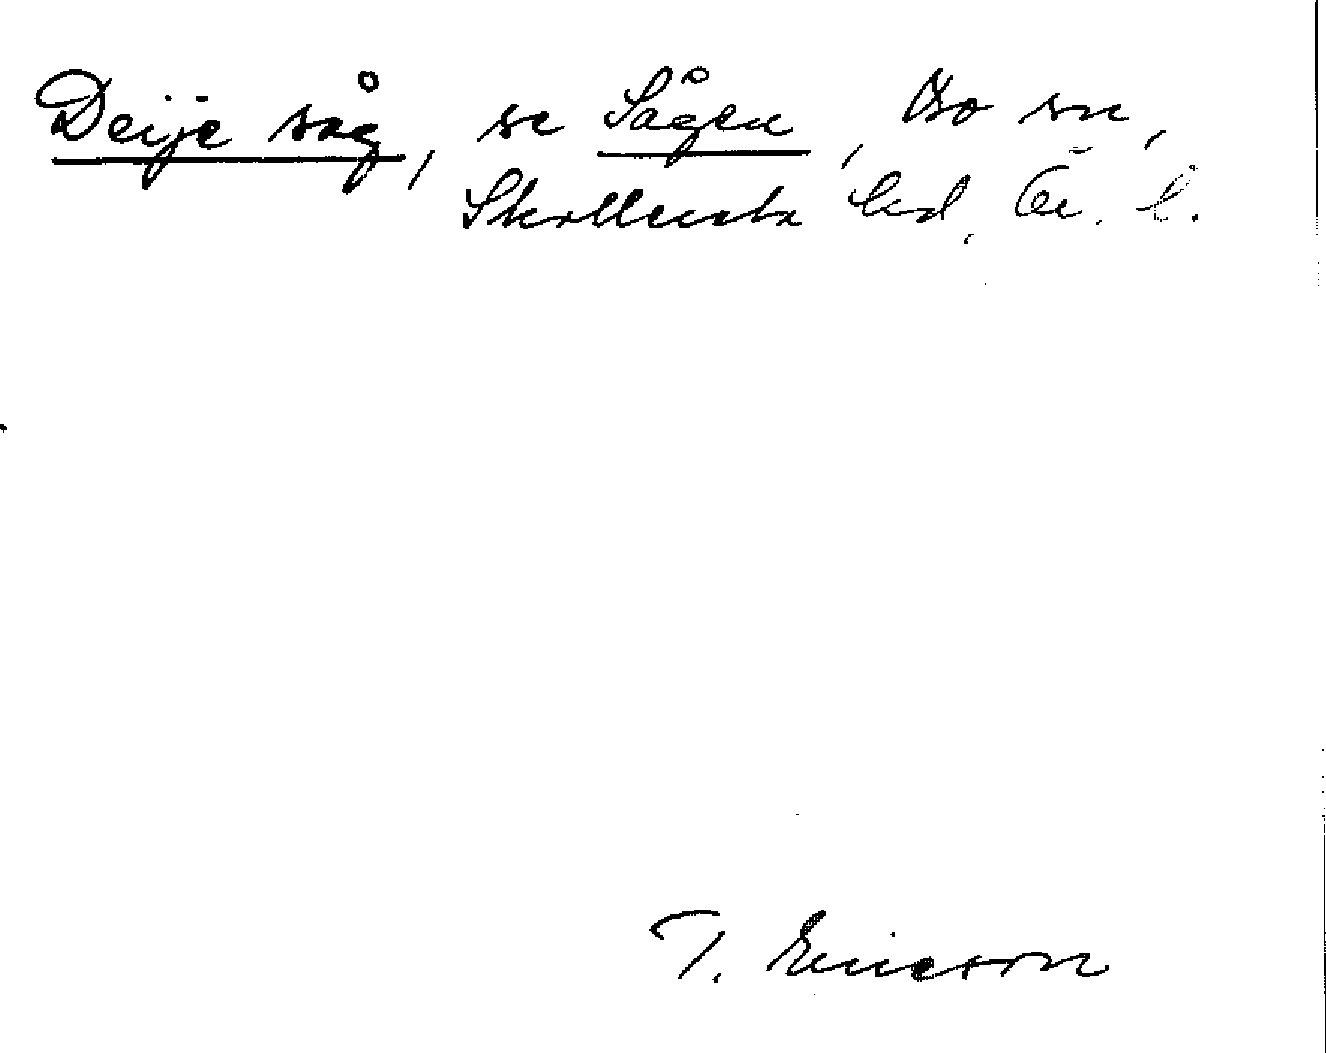 Deije såg, se Sågen, Bo sn,
Skollersta hd, Ör. l.
T. Ericson